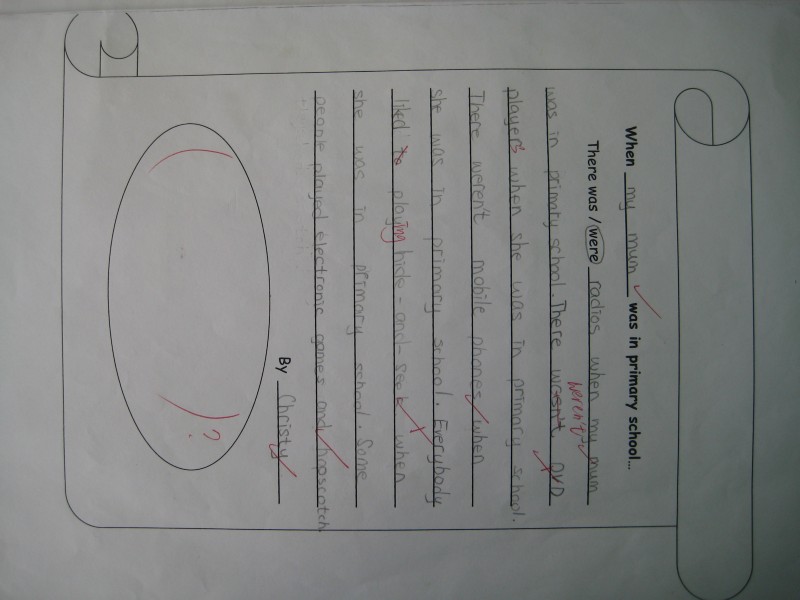 When my mum was in primary school...
There was / were radios when my mum
was in primary school. There wasn't weren't DVD
players when she was in primary school.
There weren't mobile phones when
she was in primary school. Everybody
liked to playing hide-and-seek when
she was in primary school. Some
people played electronic games and hopscotch
By Christy
?